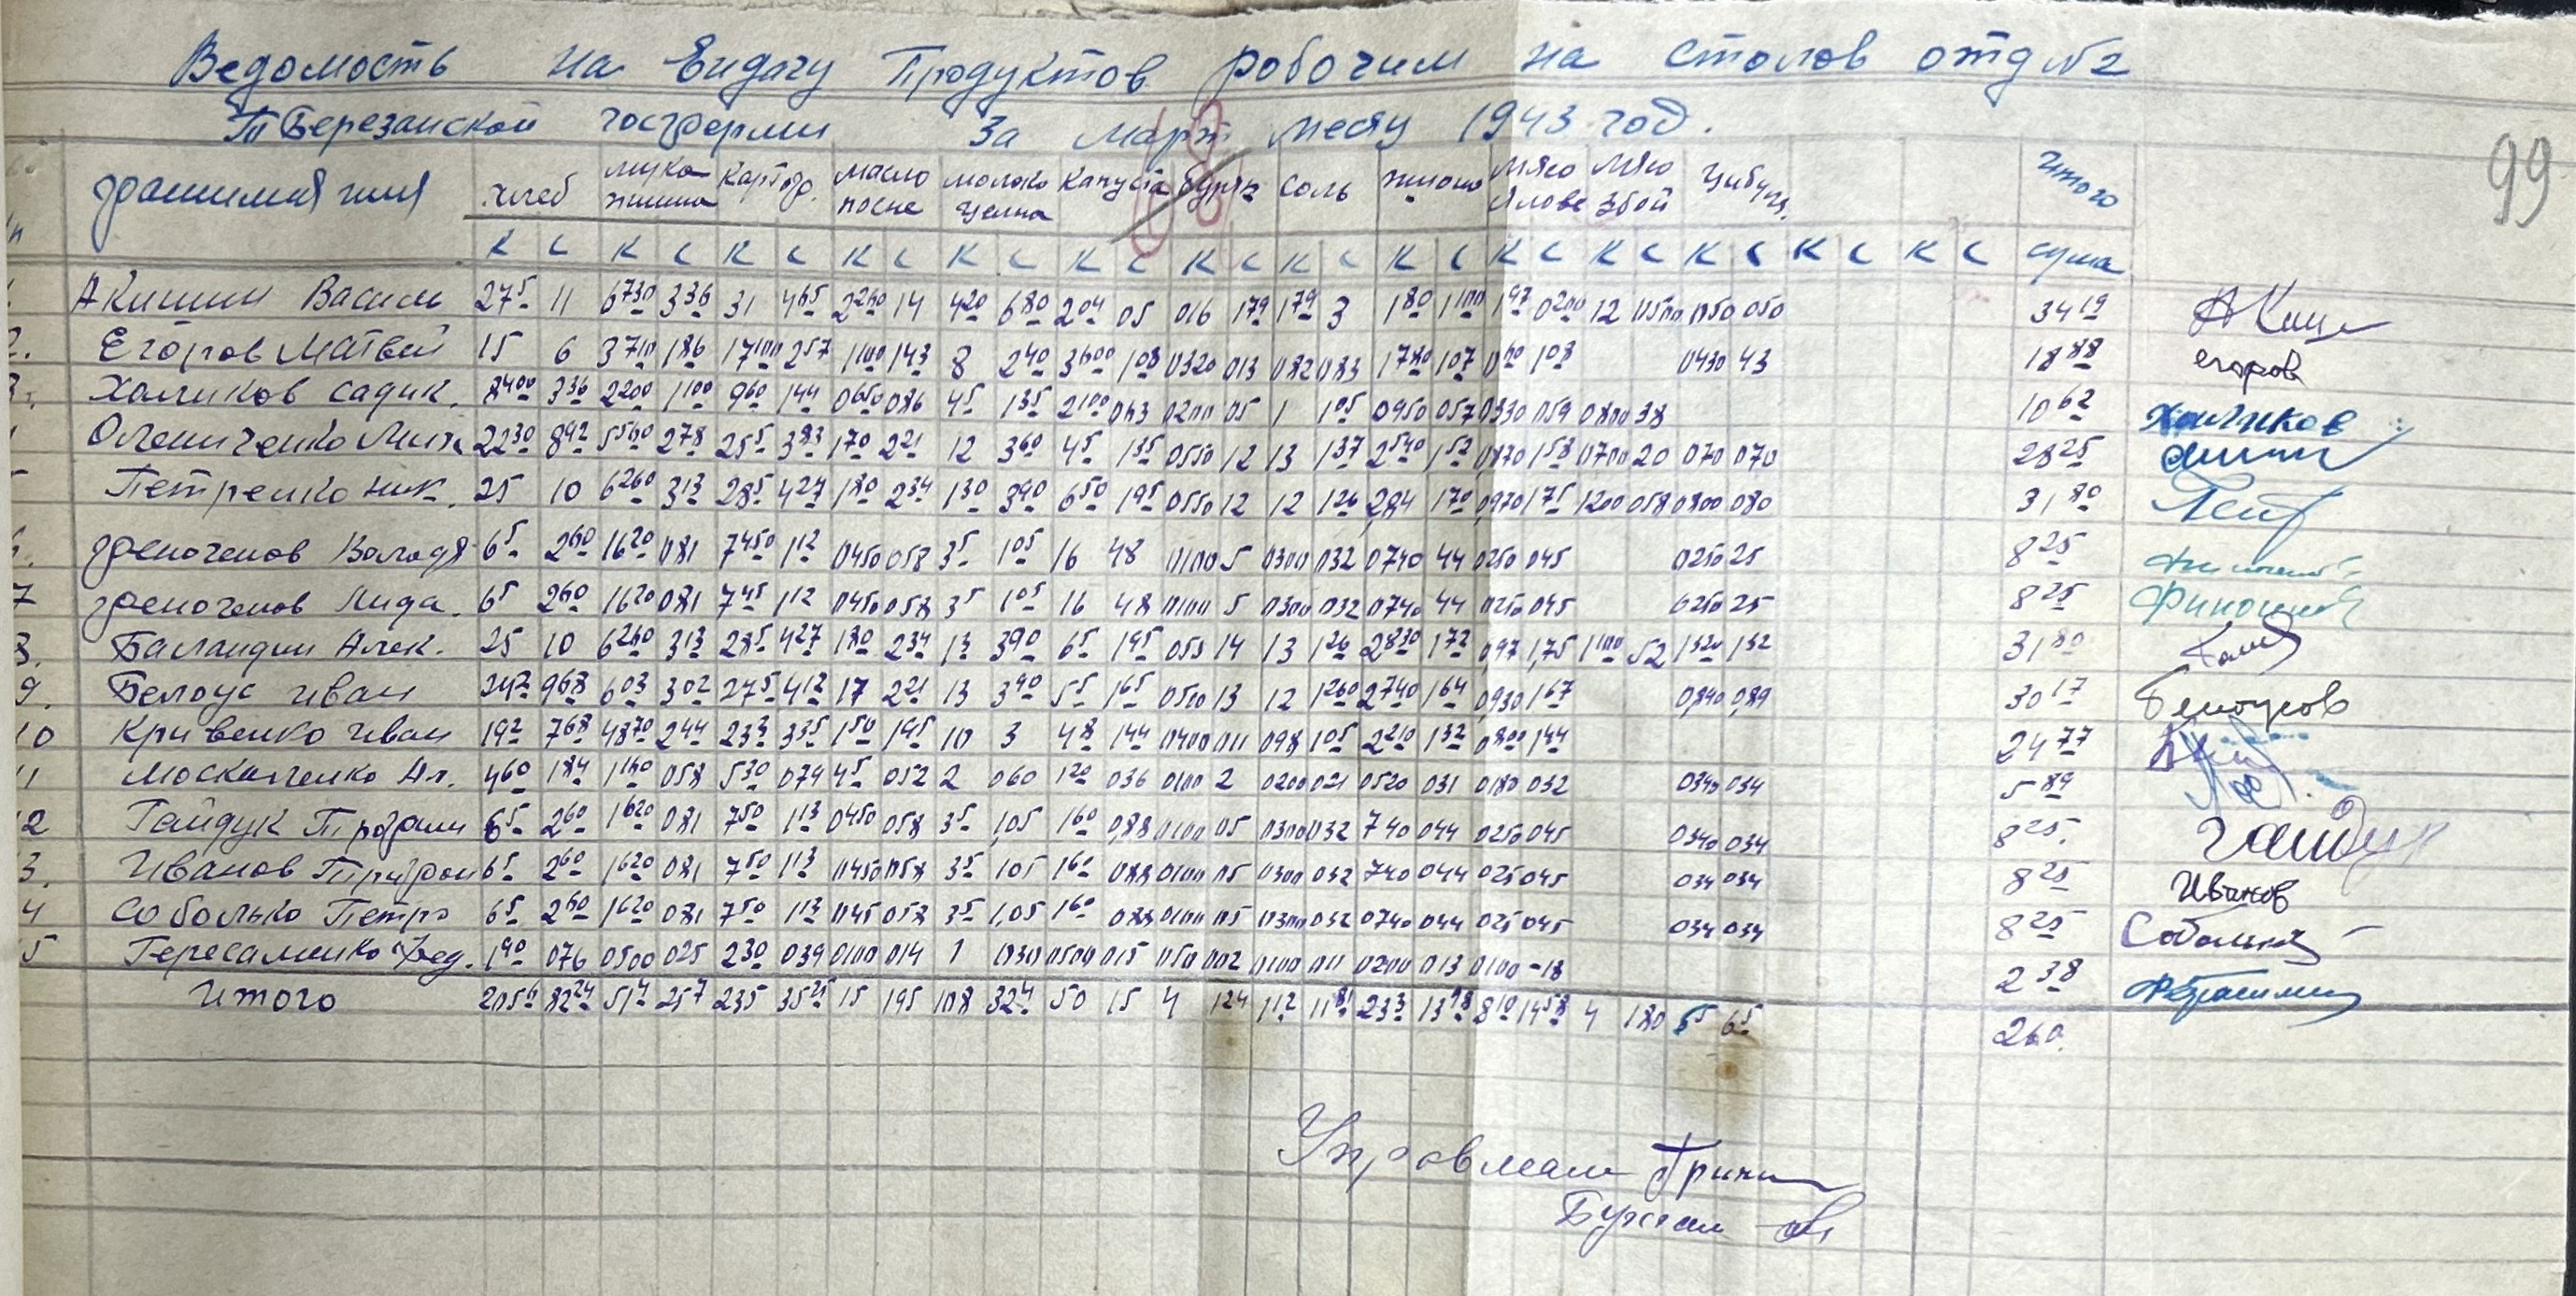 Ведомость на Видачу Продуктов робочим на столов отд №2
Т Березанской госферми За Март месяц 1943 год.
99
фамилия имя хлеб мука пшина картоф. масло посне молоко целна капуста буряк соль пшоно мясо ялове мясо збой цибуля Итого
К С К С К С К С К С К С К С К С К С К С К С К С К С К С сума
Акишин Васили 27⁵ 11 6⁷³⁰ 3³⁶ 31 4⁶⁵ 2²⁶⁰ 14 4²⁰ 6⁸⁰ 2⁰⁴ 05 016 1⁷⁹ 1⁷⁹ 3 1⁸⁰ 1¹⁰⁰ 1⁹⁷ 0²⁰⁰ 12 050 34¹⁹
2. Егоров Матвей 15 6 3⁷¹⁰ 1⁸⁶ 17¹⁰⁰ 2⁵⁷ 1¹⁰⁰ 1⁴³ 8 2⁴⁰ 3⁶⁰⁰ 1⁰⁸ 0320 013 082 083 1⁷⁸⁰ 1⁰⁷ 1⁰⁸ 0430 43 18⁸⁸ егоров
Халиков садик. 8⁴⁰⁰ 3³⁶ 2²⁰⁰ 1¹⁰⁰ 9⁶⁰ 1⁴⁴ 0650 086 4⁵ 1³⁵ 2¹⁰⁰ 063 0200 05 1 1⁰⁵ 0950 057 0330 059 0800 38 10⁶² Халиков
Олениченко Мих. 22³⁰ 8⁹² 5⁵⁶⁰ 2⁷⁸ 25⁵ 3⁸³ 1⁷⁰ 2²¹ 12 3⁶⁰ 4⁵ 1³⁵ 0550 12 13 1³⁷ 2⁵⁴⁰ 1⁵² 0870 1⁵⁸ 0700 20 070 070 28²⁵
Петренко Ник. 25 10 6²⁶⁰ 3¹³ 28⁵ 4²⁷ 1⁸⁰ 2³⁴ 1³⁰ 3⁹⁰ 6⁵⁰ 1⁹⁵ 0550 12 12 1²⁶ 2,84 1⁷⁰ 0,970 1⁷⁵ 1200 058 0800 080 31⁸⁰ Петр
феноченов Володя 6⁵ 2⁶⁰ 16²⁰ 081 7⁴⁵⁰ 1¹² 0450 058 3⁵ 1⁰⁵ 16 48 0100 5 0300 032 0740 44 0250 045 0250 25 8²⁵
7 феноченов Лида. 6⁵ 2⁶⁰ 16²⁰ 081 7⁴⁵ 1¹² 0450 058 3⁵ 1⁰⁵ 16 48 0100 5 0300 032 0740 44 0250 045 0250 25 8²⁵
8. Баландин Алек. 25 10 6²⁶⁰ 3¹³ 28⁵ 4²⁷ 1⁸⁰ 2³⁴ 13 3⁹⁰ 6⁵ 1⁹⁵ 055 14 13 1²⁶ 2⁸³⁰ 1⁷² 0,97 1,75 1¹⁰⁰ 52 1³²⁰ 1³² 31⁸⁰
9. Белоус Иван 24² 9⁶⁸ 6⁰³ 3⁰² 27⁵ 4¹² 17 2²¹ 13 3⁹⁰ 5⁵ 1⁶⁵ 0500 13 12 1²⁶⁰ 2⁷⁴⁰ 1⁶⁴ 0,930 1⁶⁷ 0,890 0,89 30¹⁷ Белоусов
10 Кривенко Иван 19² 7⁶⁸ 4⁸⁷⁰ 2⁴⁴ 23³ 3³⁵ 1⁵⁰ 1⁹⁵ 10 3 4⁸ 1⁴⁴ 0400 011 098 1⁰⁵ 2²¹⁰ 1³² 0800 1⁴⁴ 24⁷⁷
11 Москаленко Ал. 4⁶⁰ 1⁸⁴ 1¹⁶⁰ 058 5³⁰ 079 4⁵ 052 2 060 1²⁰ 036 0100 2 0200 021 0520 031 0180 032 0340 034 5⁸⁹
12 Гайдук Трофим 6⁵ 2⁶⁰ 1⁶²⁰ 081 7⁵⁰ 1¹³ 0450 058 3⁵ 1,05 1⁶⁰ 0,88 0100 05 0300 032 740 044 0250 045 0340 034 8²⁵ Гайдук
3. Иванов Трифон 6⁵ 2⁶⁰ 1⁶²⁰ 081 7⁵⁰ 1¹³ 0450 058 3⁵ 105 1⁶⁰ 088 0100 05 0300 032 740 044 025 045 034 034 8²⁵ Иванов
4 Соболько Петро 6⁵ 2⁶⁰ 1⁶²⁰ 081 7⁵⁰ 1¹³ 045 058 3⁵ 1,05 1⁶⁰ 088 0100 05 0300 032 0740 044 025 045 034 034 8²⁵
5 Гересаменко Фед. 1⁹⁰ 076 0500 025 2³⁰ 039 0100 014 1 030 0500 015 050 002 0100 011 0200 013 0100 -18 2³⁸
Итого 205⁶ 82²⁴ 51⁴ 25⁷ 235 35²⁵ 15 195 108 32⁴ 50 15 4 124 11² 11⁸¹ 23³ 13⁹⁸ 8¹⁰ 14⁵⁸ 4 180 6⁵ 6⁵ 260
Управлаш